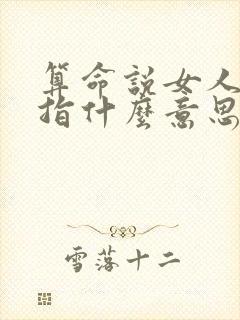 算命說女人
指什麼意思
雪落十二